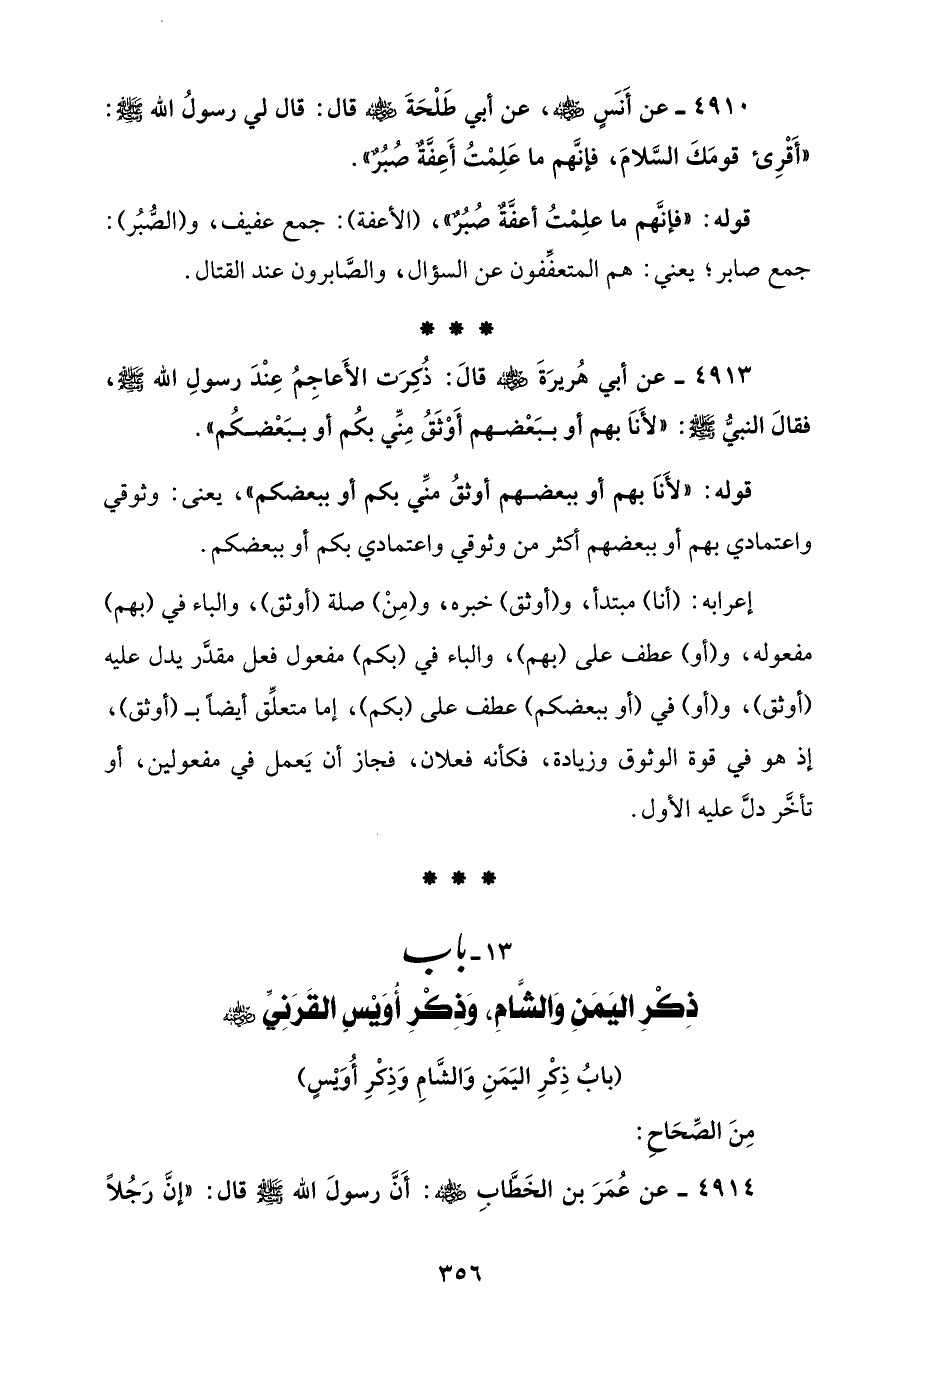 ٤٩١٠ ـ عن أَنَسٍ ﵁، عن أبي طَلْحَةَ ﵁ قال: قال لي رسولُ الله ﷺ:
«أَقْرِئ قومَكَ السَّلامَ، فإنَّهم ما عَلِمْتُ أَعِفَّةٌ صُبُرٌ».
قوله: «فإنَّهم ما علِمْتُ أعفَّةٌ صُبُرٌ»، (الأعفة): جمع عفيف، و(الصُّبُر):
جمع صابر؛ يعني: هم المتعفِّفون عن السؤال، والصَّابرون عند القتال.
* * *
٤٩١٣ ـ عن أبي هُريرَةَ ﵁ قالَ: ذُكِرَت الأَعاجِمُ عِنْدَ رسولِ الله ﷺ،
فقالَ النبيُّ ﷺ: «لأَنَا بهم أو بـبَعْضـهم أَوْثَقُ مِنِّي بكُم أو بـبَعْضـكُم».
قوله: «لأنَا بهم أو ببعضـهم أوثقُ منِّي بكم أو ببعضكم»، يعنى: وثوقي
واعتمادي بهم أو ببعضهم أكثر من وثوقي واعتمادي بكم أو ببعضكم.
إعرابه: (أنا) مبتدأ، و(أوثق) خبره، و(مِنْ) صلة (أوثق)، والباء في (بهم)
مفعوله، و(أو) عطف على (بهم)، والباء في (بكم) مفعول فعل مقدَّر يدل عليه
(أوثق)، و(أو) في (أو ببعضكم) عطف على (بكم)، إما متعلِّق أيضاً بـ (أوثق)،
إذ هو في قوة الوثوق وزيادة، فكأنه فعلان، فجاز أن يَعمل في مفعولين، أو
تأخَّر دلَّ عليه الأول.
* * *
١٣ ـ باب
ذِكْرِ اليَمَنِ وَالشَّامِ، وَذِكْرِ أُوَيْسٍ القَرَنيِّ ﵁
(بابُ ذِكْرِ اليَمَنِ وَالشَّامِ وَذِكْرِ أُوَيْسٍ)
مِنَ الصِّحَاحِ:
٤٩١٤ ـ عن عُمَرَ بن الخَطَّابِ ﵁: أَنَّ رسولَ الله ﷺ قال: «إنَّ رَجُلاً
٣٥٦